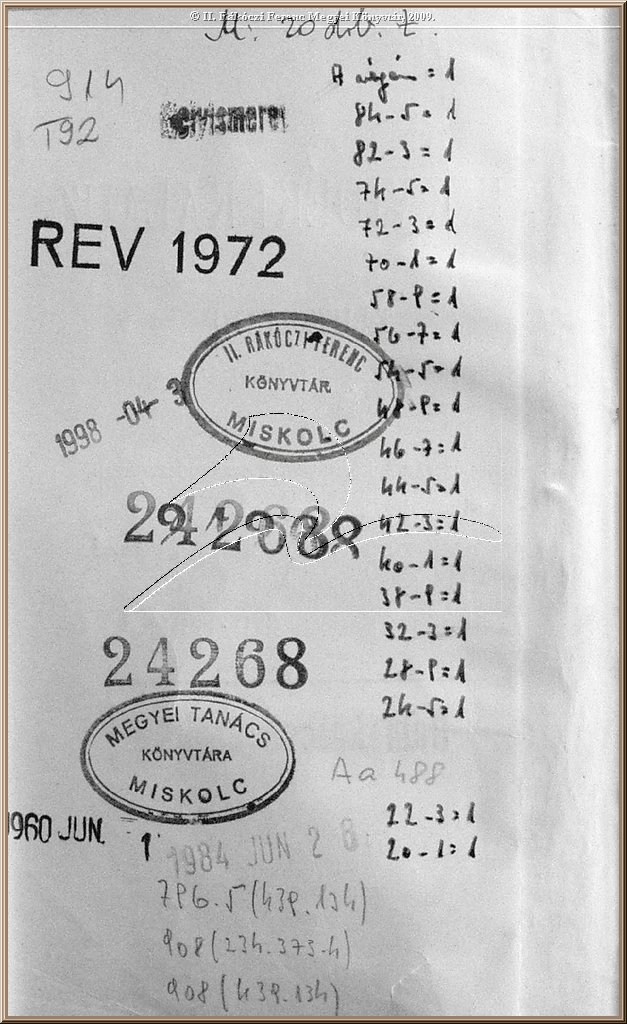 © II. Rákóczi Ferenc Megyei Könyvtár, 2009.
M: 20 drb. t.
914
T92
Helyismeret
REV 1972
II. RÁKÓCZI FERENC
KÖNYVTÁR
MISKOLC
1998 -04- 3
24268
MEGYEI TANÁCS
KÖNYVTÁRA
MISKOLC
1960 JUN. 1
1984 JUN 2 8.
796.5(439.134)
908(234.373.4)
908(439.134)
A végén = 1
84-5=1
82-3=1
74-5=1
72-3=1
70-1=1
58-9=1
56-7=1
54-5=1
48-9=1
46-7=1
44-5=1
42-3=1
40-1=1
38-9=1
32-3=1
28-9=1
24-5=1
Aa 488
22-3=1
20-1=1